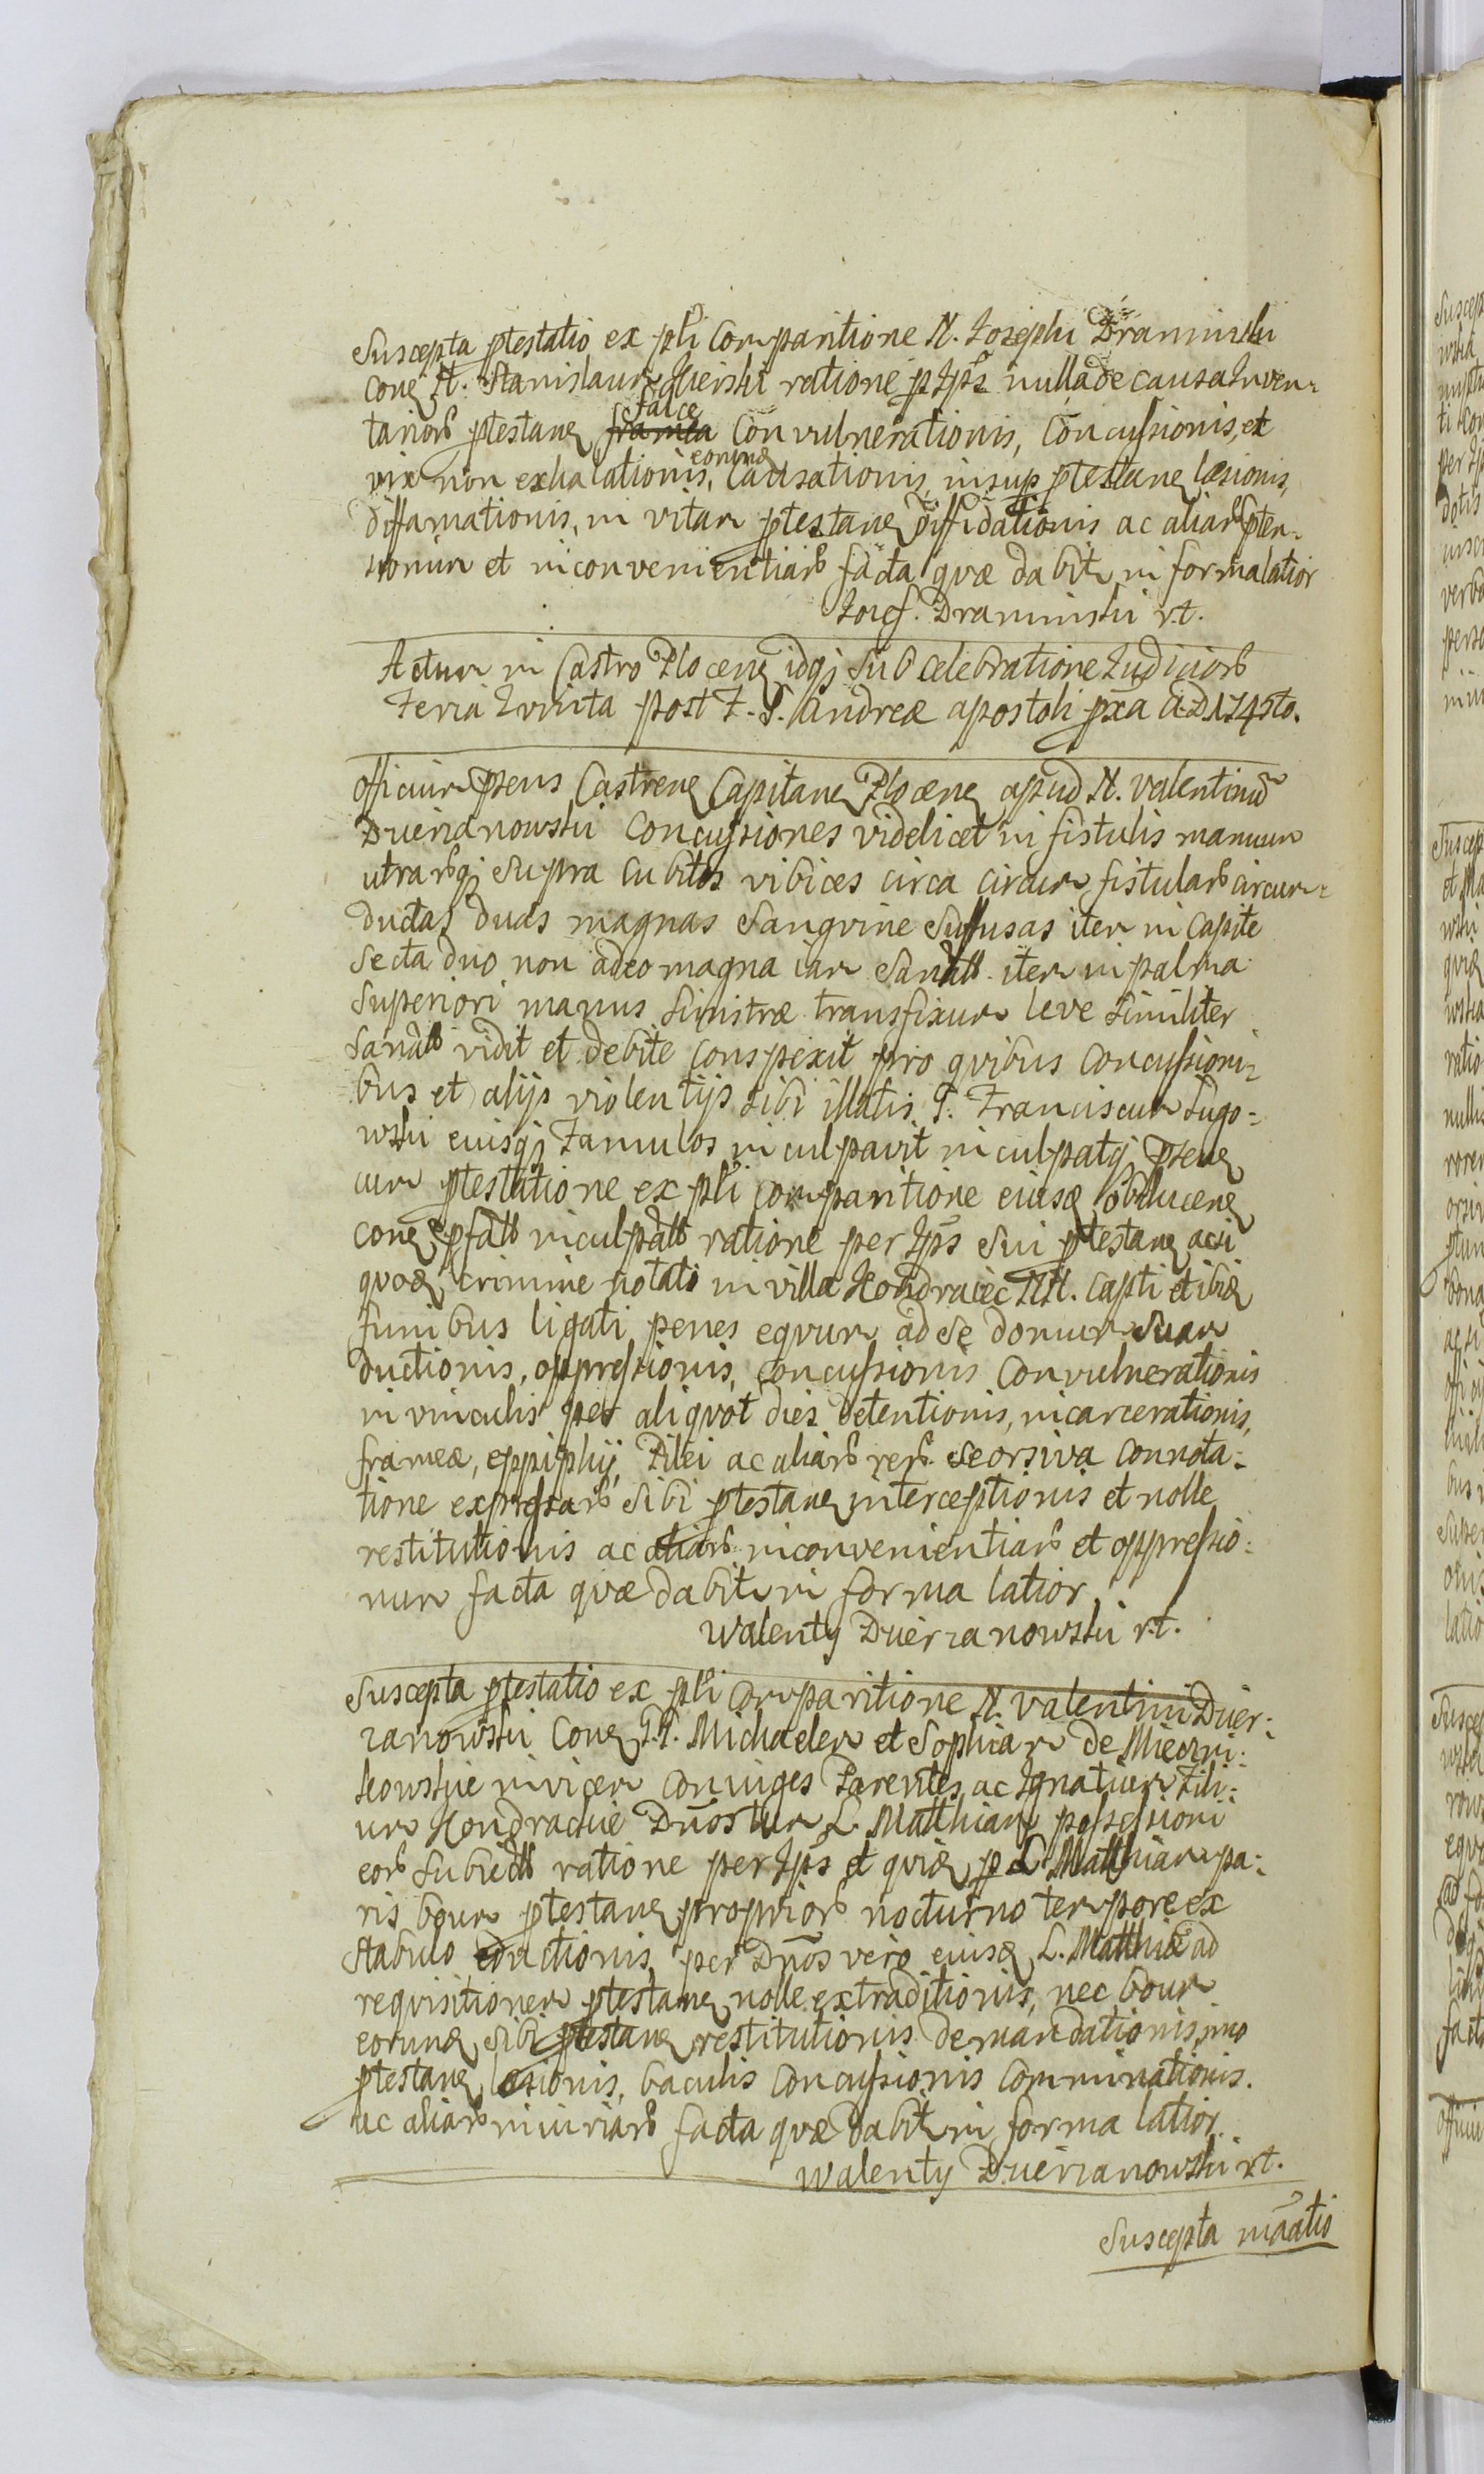 Suscepta ptestatio ex pli Comparitione N. Josephi Draminski
Conq N. Stanislaum ratione p Jps nulla de causa Inven-
tariorb ptestanq framea falce Convulnerationis, Concussionis, et
vix non exhalationis, eorumq Causationis, insup ptestanq læsionis,
diffamationis, in vitam ptestanq diffidationis ac aliarb pten-
sionum et inconvenientiarb facta quæ dabit in forma latior
Josef Draminski r.t.
Actum in Castro Plocenq idqj sub celebratione Judiciorb
Feria Quinta post F. S. Andreæ apostoli pxa A.D. 1745to.
Officium psens Castrenq Capitanq Plocenq apud N. Valentinum
Duerzanowski Concussiones videlicet in fistulis manuum
utrarbqj supra Cubitos vibices circa circum fistularb circum-
ductas duas magnas Sanguine Suffusas item in Capite
Secta duo non adeo magna iam Sanatb. item in palma
Superiori manus Sinistræ transfixum leve similiter
Sanatb vidit et debite Conspexit pro quibus Concussioni-
bus et alijs violentijs sibi illatis G. Franciscum Lugo-
wski eiusqj Famulos inculpavit inculpatqj psenq
cum ptestatione ex pli Comparitione eiusq obducenq
conq pfatb inculpatb ratione per Jps Sui ptestanq acsi
quoq crimine notati in villa Kondraiec NN. Capti et ibiq
funibus ligati penes equum ad se domum Suam
ductionis, oppressionis, Concussionis Convulnerationis
in vinculis per aliquot dies detentionis, incarcerationis,
frameæ, eppiphij, Pilei ac aliarb rerb. Seorsiva Connota-
tione expressarb sibi ptestanq interceptionis et nolle
restitutionis ac aliarb inconvenientiarb et oppressio-
num facta quæ dabit in forma latior.
Walenty Duerzanowski r.t.
Suscepta ptestatio ex pli Comparitione N. Valentini Duer-
zanowski Conq G.G. Michaelem et Sophiam de
invicem Coniuges Parentes ac Ignatium Fili-
um Dnos tum L. Matthiam possessioni
eorb Subiectb ratione per Jps et quiq p L. Matthiam pa-
ris boum ptestanq propriorb nocturno tempore ex
Stabulo eductionis, per Dnos vero eiusq L. Matthiæ ad
requisitionem ptestanq nolle extraditionis, nec boum
eorumq sibi ptestanq restitutionis demandationis, imo
ptestanq læsionis, baculis Concussionis Comminationis.
ac aliarb iniuriarb facta quæ dabit in forma latior.
Walenty Duerzanowski r.t.
Suscepta